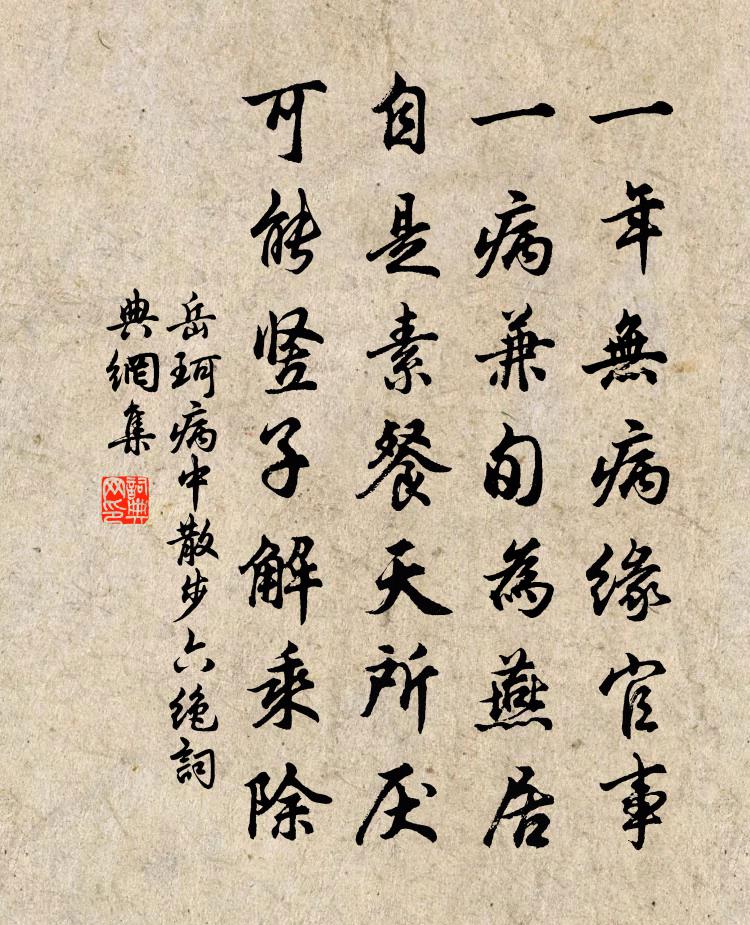 一年無病緣官事
一病兼旬為燕居
自是素餐天所厌
可能竖子解乘除
岳珂病中散步六绝詞
典網集
詞典
网印